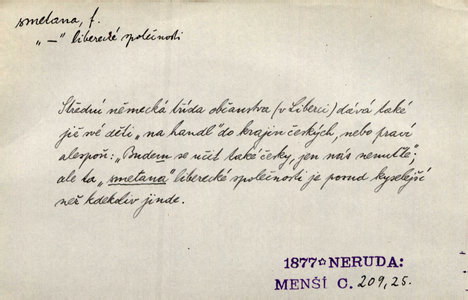 smetana, f.
„—" liberecké společnosti
Střední německá třída občanstva (v Liberci) dává také
již své děti „na handl" do krajin českých, nebo praví
alespoň: „Budem se učit také česky, jen nás nenuťte";
ale ta „smetana" liberecké společnosti je posud kyselejší
než kdekoliv jinde.
1877☆NERUDA:
MENŠÍ C. 209,25.